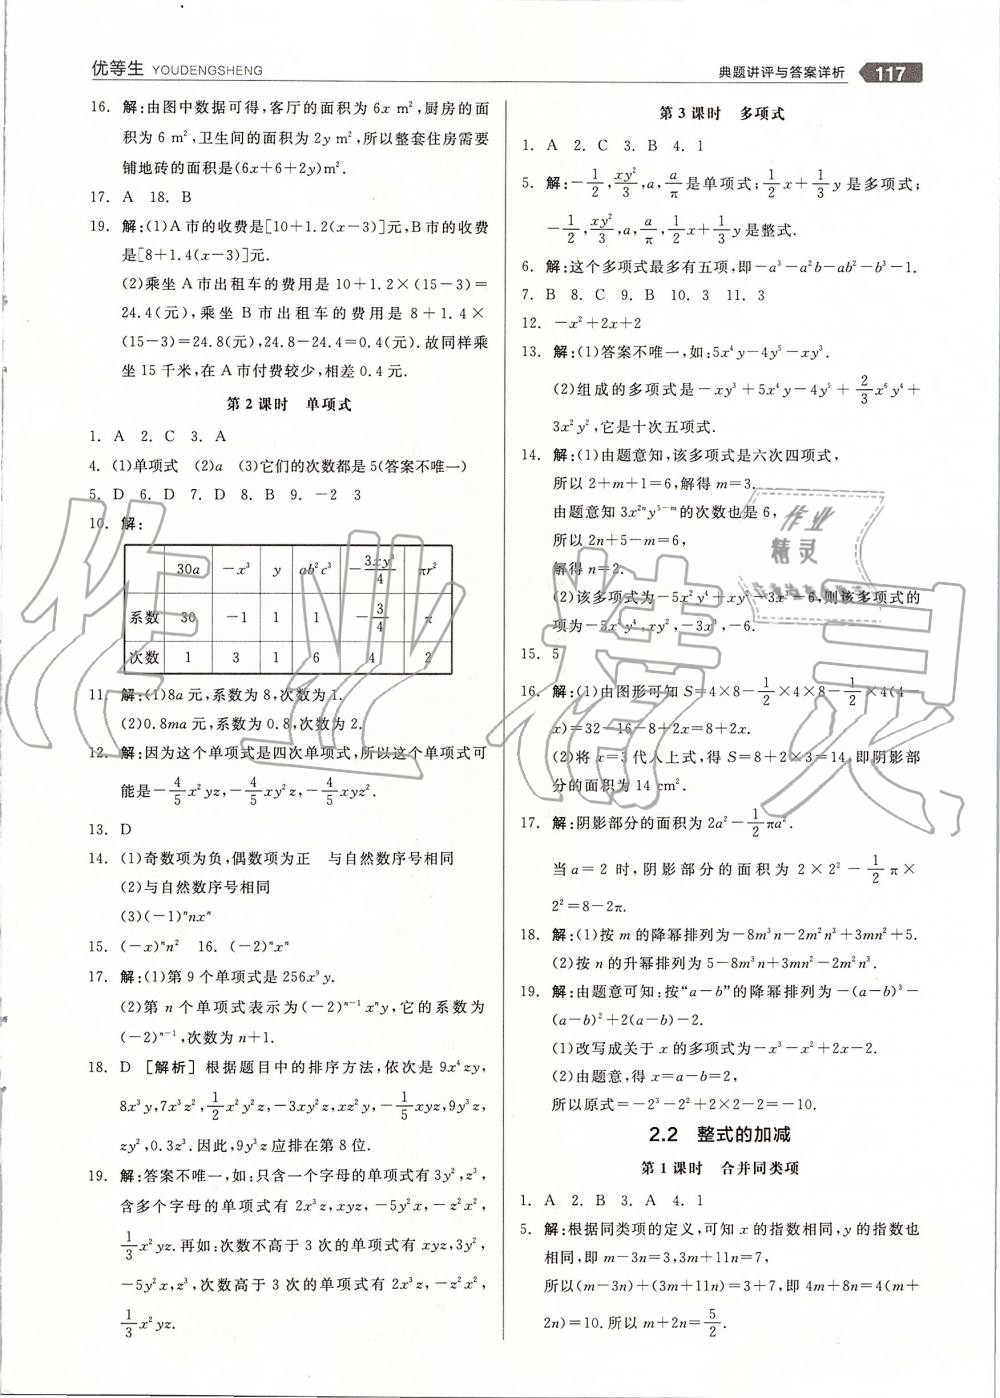 优等生 YOUDENGSHENG
典题讲评与答案详析 117
16. 解:由图中数据可得,客厅的面积为 6x m²,厨房的面
积为 6 m²,卫生间的面积为 2y m²,所以整套住房需要
铺地砖的面积是(6x+6+2y)m².
17. A 18. B
19. 解:(1)A市的收费是[10+1.2(x-3)]元,B市的收费
是[8+1.4(x-3)]元.
(2)乘坐 A 市出租车的费用是 10+1.2×(15-3)=
24.4(元),乘坐 B 市出租车的费用是 8+1.4×
(15-3)=24.8(元),24.8-24.4=0.4(元).故同样乘
坐 15 千米,在 A 市付费较少,相差 0.4 元.
第 2 课时 单项式
1. A 2. C 3. A
4. (1)单项式 (2)a (3)它们的次数都是5(答案不唯一)
5. D 6. D 7. D 8. B 9. -2 3
10. 解:
30a -x³ y ab²c³ -3xy³/4 πr²
系数 30 -1 1 1 -3/4 π
次数 1 3 1 6 4 2
11. 解:(1)8a 元,系数为 8,次数为 1.
(2)0.8ma 元,系数为 0.8,次数为 2.
12. 解:因为这个单项式是四次单项式,所以这个单项式可
能是-4/5x²yz,-4/5xy²z,-4/5xyz².
13. D
14. (1)奇数项为负,偶数项为正 与自然数序号相同
(2)与自然数序号相同
(3)(-1)ⁿnxⁿ
15. (-x)ⁿn² 16. (-2)ⁿxⁿ
17. 解:(1)第 9 个单项式是 256x⁹y.
(2)第 n 个单项式表示为(-2)ⁿ⁻¹xⁿy,它的系数为
(-2)ⁿ⁻¹,次数为 n+1.
18. D [解析] 根据题目中的排序方法,依次是 9x⁴zy,
8x³y,7x³z²,1/2x²y²z,-3xy²z,xz²y,-1/5xyz,9y³z,
zy²,0.3z³.因此,9y³z 应排在第 8 位.
19. 解:答案不唯一,如:只含一个字母的单项式有 3y²,z³,
含多个字母的单项式有 2x³z,xyz,-5y²x,-z²x²,
1/3x²yz.再如:次数不高于 3 次的单项式有 xyz,3y²,
-5y²x,z³,次数高于 3 次的单项式有 2x³z,-z²x²,
1/3x²yz.
第 3 课时 多项式
1. A 2. C 3. B 4. 1
5. 解:-1/2,xy²/3,a,a/π是单项式;1/2x+1/3y 是多项式;
-1/2,xy²/3,a,a/π,1/2x+1/3y是整式.
6. 解:这个多项式最多有五项,即-a³-a²b-ab²-b³-1.
7. B 8. C 9. B 10. 3 11. 3
12. -x²+2x+2
13. 解:(1)答案不唯一,如:5x⁴y-4y⁵-xy³.
(2)组成的多项式是-xy³+5x⁴y-4y⁵+2/3x⁶y⁴+
3x²y²,它是十次五项式.
14. 解:(1)由题意知,该多项式是六次四项式,
所以 2+m+1=6,解得 m=3.
由题意知 3x²ⁿy⁵⁻ᵐ的次数也是 6,
所以 2n+5-m=6,
解得 n=2.
(2)该多项式为-5x²y⁴+xy²-3x³-6,则该多项式的
项为-5x²y⁴,xy²,-3x³,-6.
15. 5
16. 解:(1)由图形可知 S=4×8-1/2×4×8-1/2×4(4-
x)=32-16-8+2x=8+2x.
(2)将 x=3 代人上式,得 S=8+2×3=14,即阴影部
分的面积为 14 cm².
17. 解:阴影部分的面积为 2a²-1/2πa².
当 a=2 时,阴影部分的面积为 2×2²-1/2π×
2²=8-2π.
18. 解:(1)按 m 的降幂排列为-8m³n-2m²n³+3mn²+5.
(2)按 n 的升幂排列为 5-8m³n+3mn²-2m²n³.
19. 解:由题意可知:按“a-b”的降幂排列为-(a-b)³-
(a-b)²+2(a-b)-2.
(1)改写成关于 x 的多项式为-x³-x²+2x-2.
(2)由题意,得 x=a-b=2,
所以原式=-2³-2²+2×2-2=-10.
2.2 整式的加减
第 1 课时 合并同类项
1. A 2. B 3. A 4. 1
5. 解:根据同类项的定义,可知 x 的指数相同,y 的指数也
相同,即 m-3n=3,3m+11n=7,
所以(m-3n)+(3m+11n)=3+7,即 4m+8n=4(m+
2n)=10.所以 m+2n=5/2.
作业精灵
作业
精灵